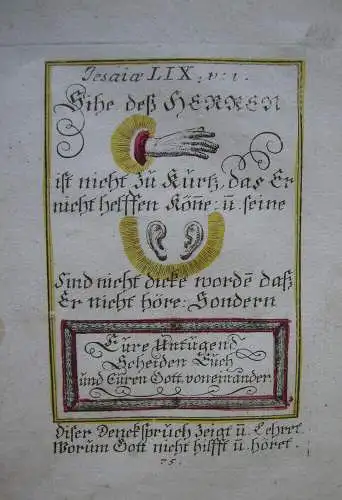 Jesaiæ LIX. v. 1.
Sihe deß HERREN
ist nicht zu Kurtz, das Er
nicht helffen Köñe: ū. seine
Sind nicht dicke wordē daß
Er nicht höre: Sondern
Eure Untugend
Scheiden Euch
und Euren Gott voneinander
Diser Denckspruch zeigt ū. Lehret
Worum Gott nicht hilfft ū. höret.
75.